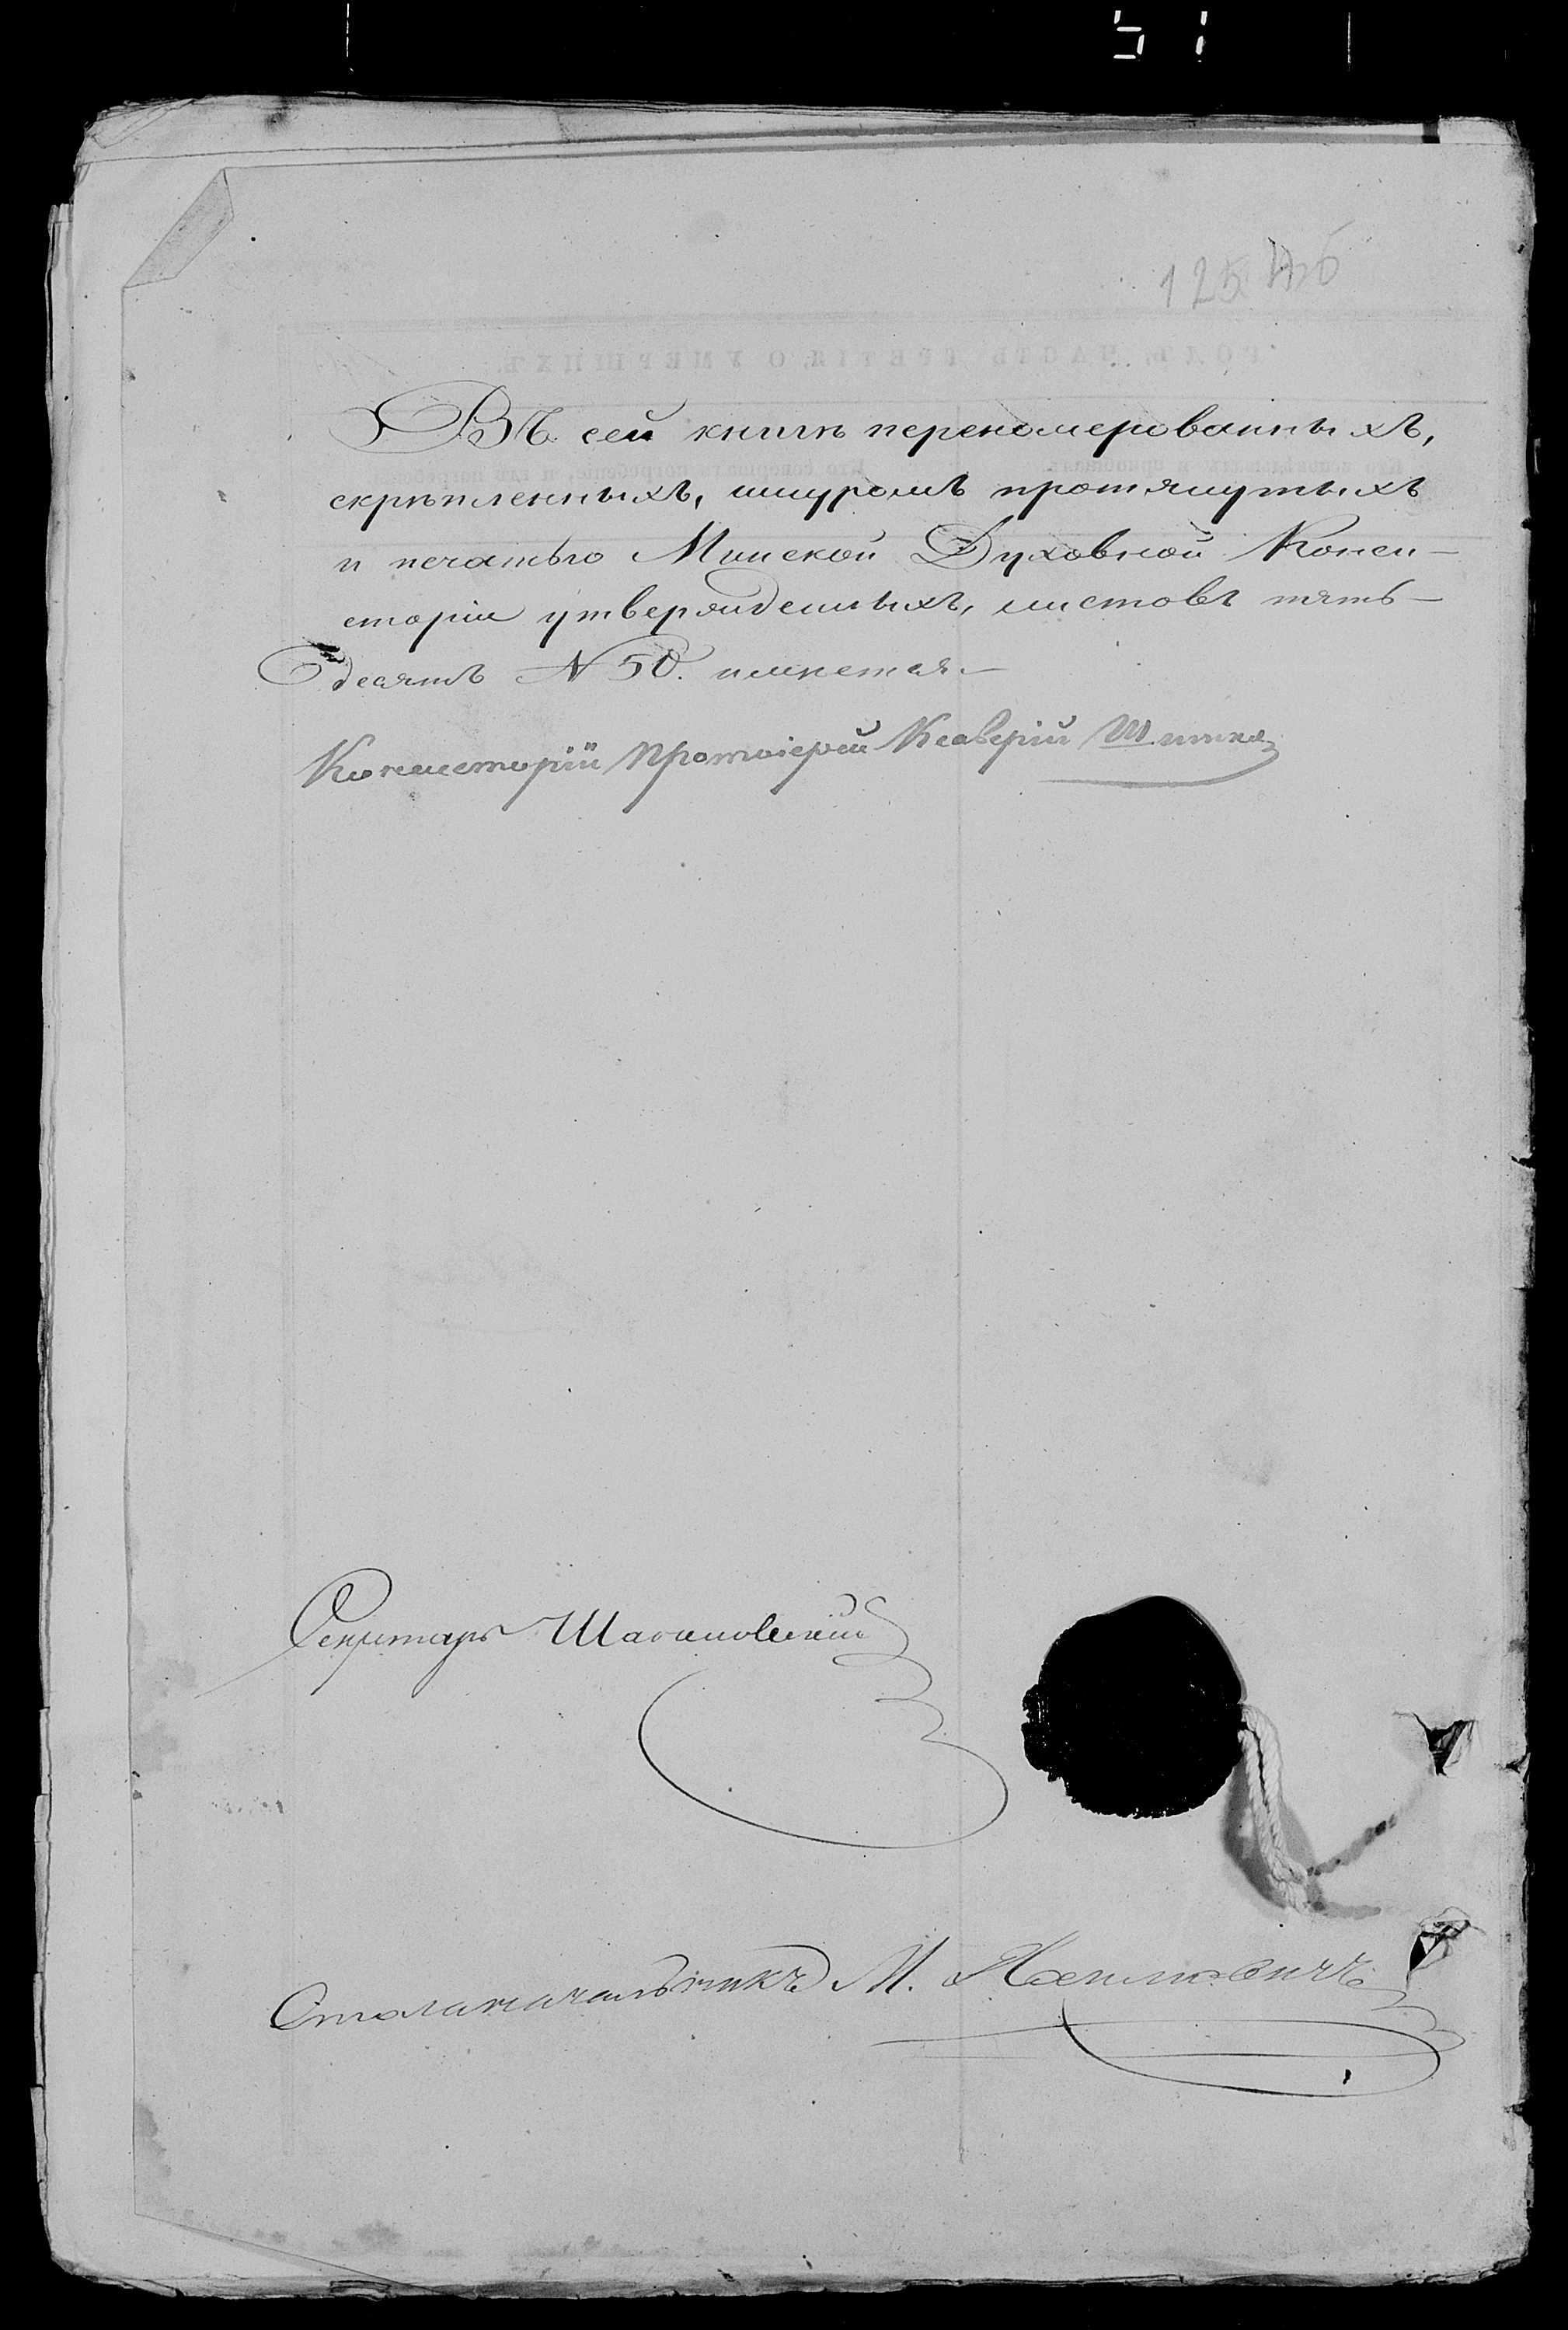 51
125
Въ сей книгѣ перекомерованныхъ,
скрѣпленныхъ, шнуромъ протянутыхъ
и печатью Минской Духовной Конси-
сторіи утвержденныхъ, листовъ пять-
десятъ № 50. имѣется.
Консисторіи Протоіерей Ксаверій
Секретарь
Столоначальникъ М.